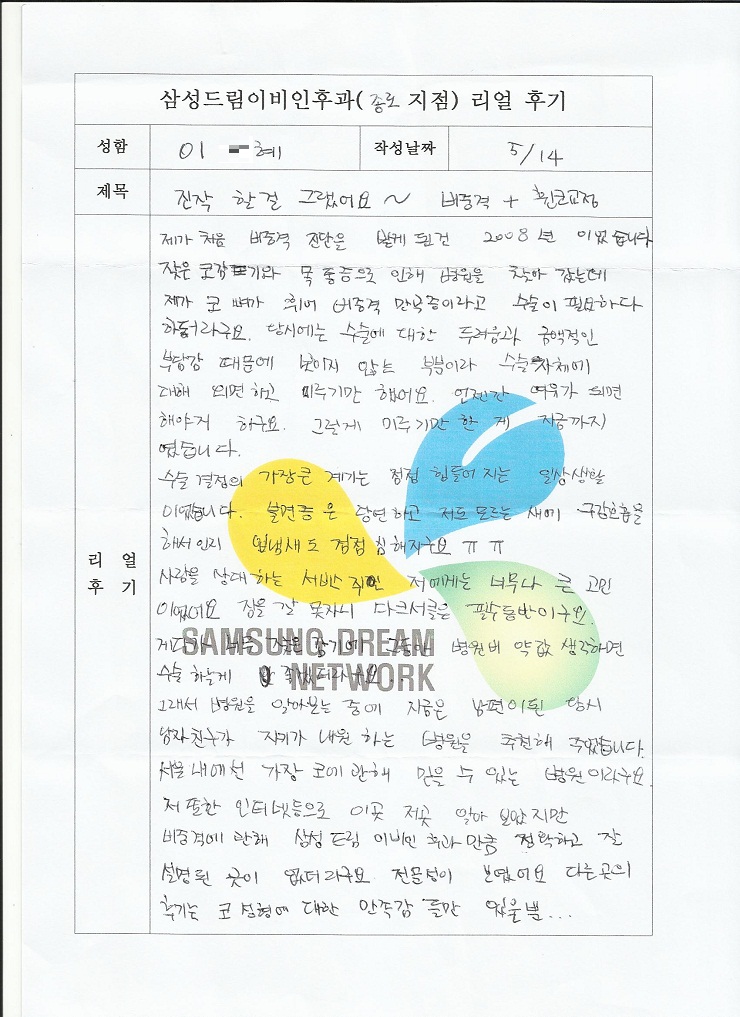 삼성드림이비인후과(종로 지점) 리얼 후기
성함 이 혜 작성날짜 5/14
제목 진작 할걸 그랬어요~ 비중격 + 휜코교정
리얼 후기
제가 처음 비중격 진단을 받게 된건 2008년 이었습니다
잦은 코감기와 목 통증으로 인해 병원을 찾아 갔는데
제가 코 뼈가 휘어 비중격 만곡증이라고 수술이 필요하다
하더라구요. 당시에는 수술에 대한 두려움과 금액적인
부담감 때문에 보이지 않는 부분이라 수술 자체에
대해 외면하고 미루기만 했어요. 언젠간 여유가 되면
해야거 하구요. 그렇게 미루기만 한 게 지금까지
였습니다.
수술 결정의 가장큰 계기는 점점 힘들어 지는 일상생활
이었습니다. 불면증은 당연하고 저도 모르는 새에 구강호흡을
해서 인지 입냄새도 점점 심해지구요 ㅠㅠ
사람을 상대하는 서비스 직인 저에게는 너무나 큰 고민
이었어요 잠을 잘 못자니 다크서클은 필수동반이구요.
게다가 너무 잦은 감기에 그동안 병원비 약값 생각하면
수술 하는게 낫겠더라구요..
그래서 병원을 알아보는 중에 지금은 남편이된 당시
남자친구가 자기가 내원 하는 병원을 추천해 주었습니다.
서울 내에선 가장 코에 관해 믿을 수 있는 병원이라구요.
저 또한 인터넷등으로 이곳 저곳 알아 보았지만
비중격에 관해 삼성드림 이비인 후과 만큼 정확하고 잘
설명된 곳이 없더라구요 전문성이 보였어요 다른곳의
후기는 코 성형에 대한 만족감 들만 있을뿐...
SAMSUNG DREAM
NETWORK